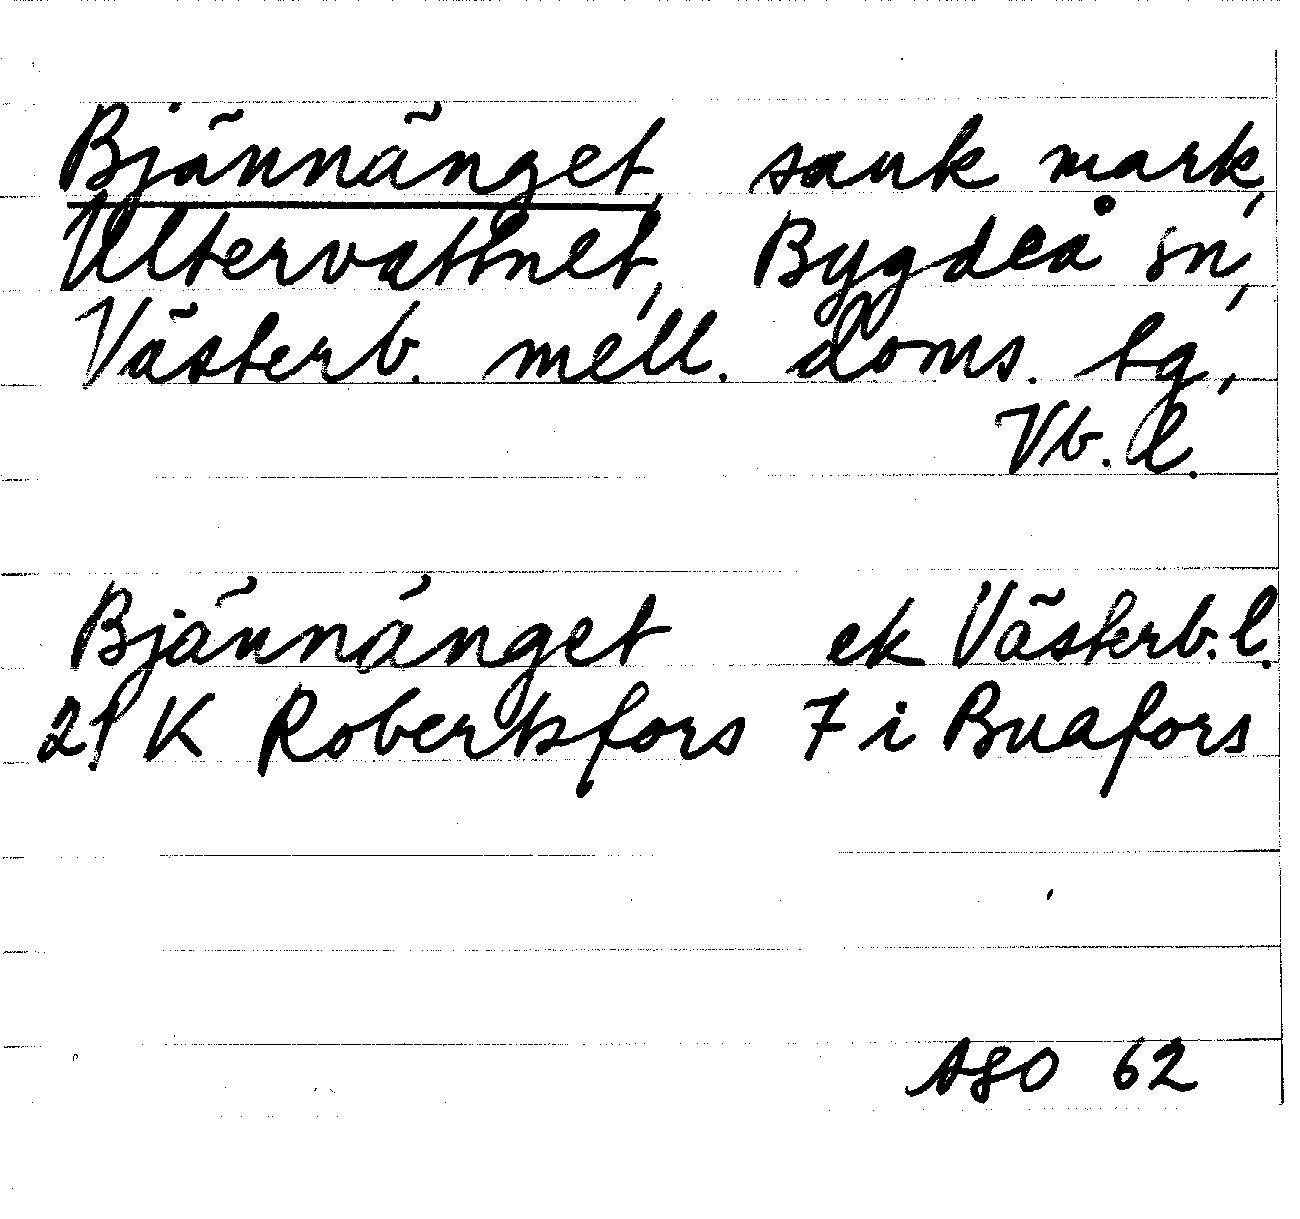 Bjännänget, sank mark,
Ultervattnet, Bygdeå sn,
Västerb. mell. doms. tg,
Vb. l.
Bjännänget ek Västerb. l.
21 K Robertsfors 7 i Buafors
ASO 62